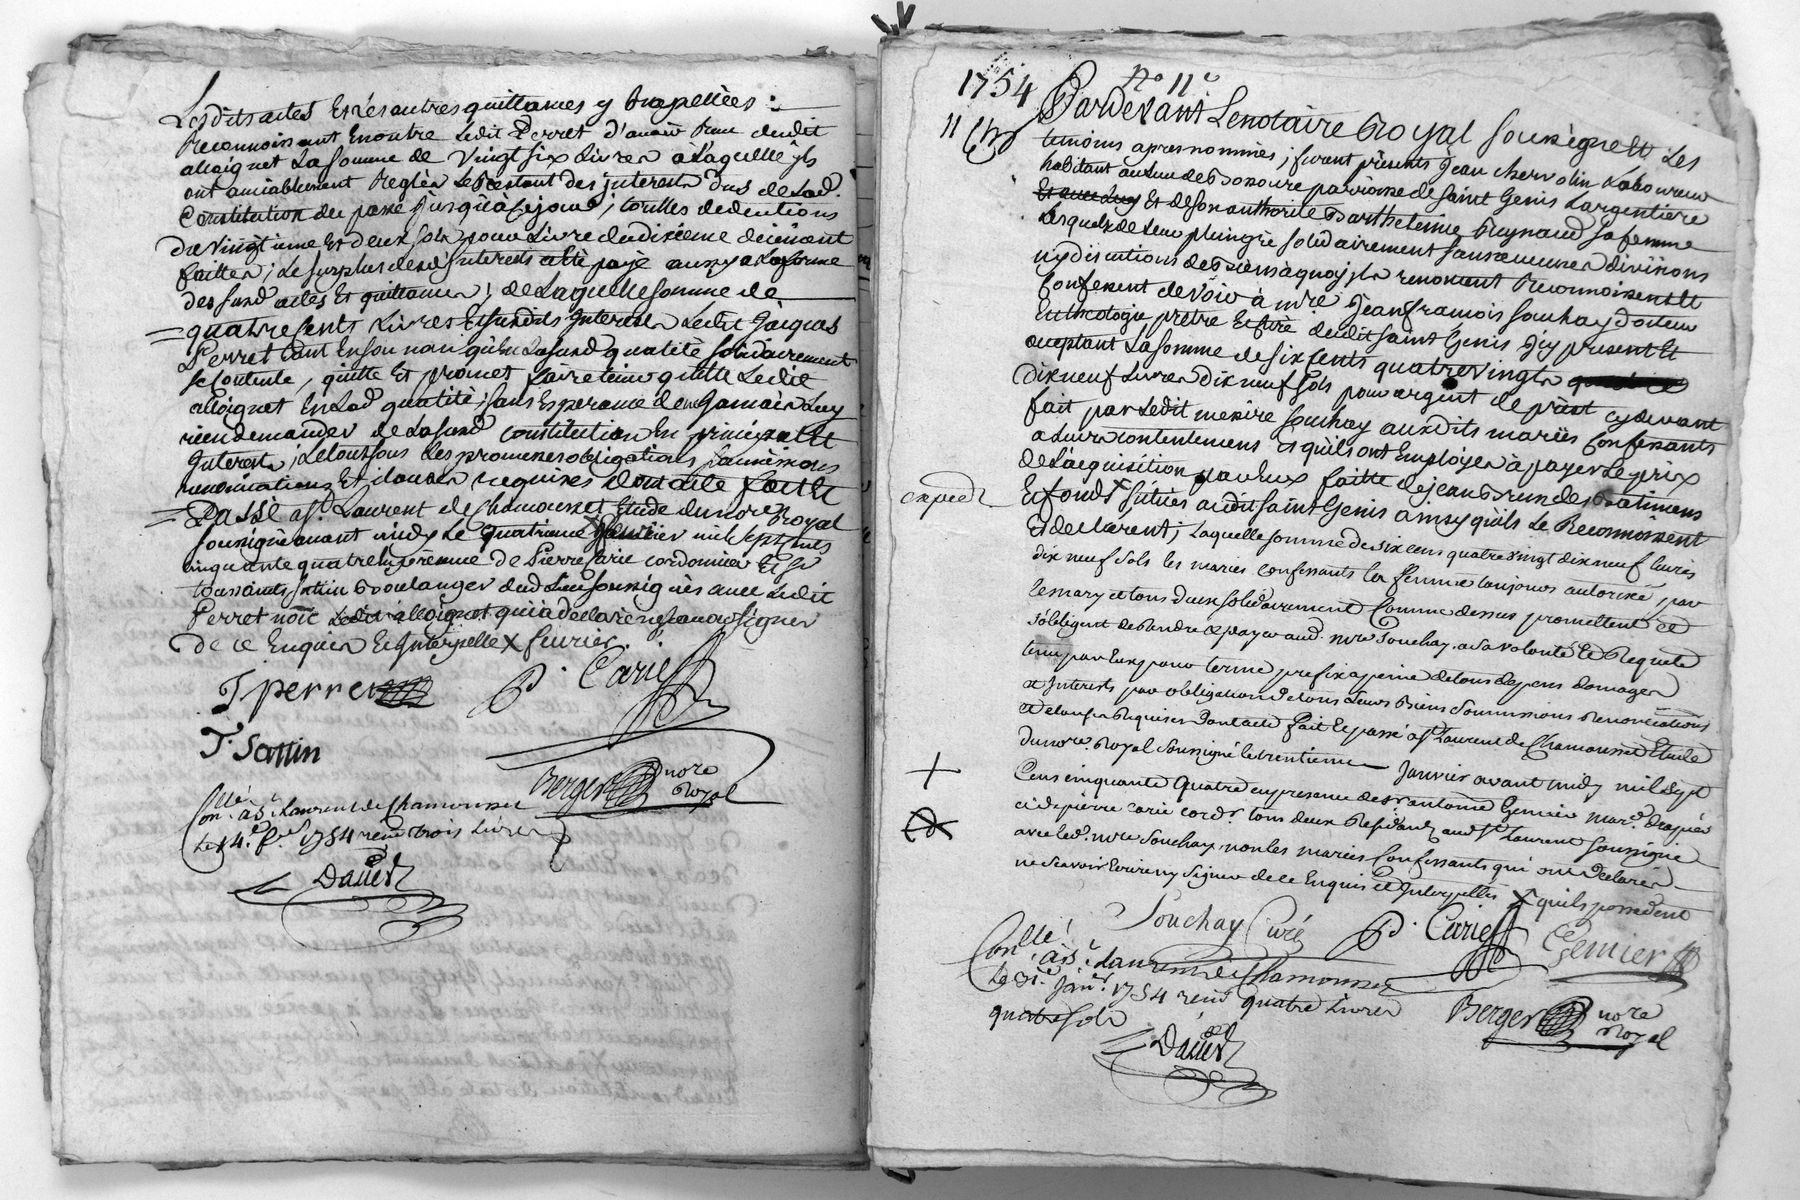 Lesdits actes Et tres autres quittances y Enoncées
Reconnoissant Enoutre Ledit Perret d'avoir Receu dudit
alloignet La somme de Vingt six Livres à Laquelle ils
ont amiablement Reglés Le Restant des interests dus de Lad.
Constitution du passé jusqu'à Cejour, touttes deductions
Du Vingtieme Et deux sols pour Livre du dixieme
faittes; Le surplus desd. interests payé
des susd actes Et quittances; de Laquelle somme de
quatre Cents Livres Et susdits Interests Ledit Jacques
Perret tant En son nom qu'En Lasusd qualité solidairement
se Contente, quitte Et promet faire tenir quitte Ledit
alloignet En Lad qualité; sans Esperance de Jamais Luy
rien demander de Lasusd Constitution En principal Et
Interests; Le tout sous Les promesses obligations soumissions
renonciations Et clauses requises Dont acte fait Et
Passé à St. Laurent de Chamousset Etude du nore Royal
soussigné avant midy Le quatrieme mil sept Cents
cinquante quatre En présence de Pierre Carie cordonnier Et sr
toussaints Sattin Boulanger dud Lieu soussignés avec Ledit
Perret non Ledit alloignet qui a declaré ne scavoir signer
De ce Enquis Et Interpellé X fevrier
J perret
P. Carie
T. Sattin
Berger nore
Royal
Con.llé à St Laurent de Chamousset
Le 14.e f.er 1754 reçu trois Livres
Dauer
1754 No 11e
Pardevant Le notaire Royal soussigné Et Les
11
temoins apres nommés; furent présents Jean chervolin Laboureur
habitant au Lieu de parroisse de saint Genis Largentiere
Et de son authorité Barthelemie Reynaud sa femme
Lesquels de Leur plein gré solidairement sans aucunes divisions
ny discutions de Biens à quoy ils renoncent Reconnoissent Et
Confessent devoir à mre Jean francois souchay docteur
En theologie prêtre Et curé dudit saint Genis icy present Et
acceptant La somme de six Cents quatre vingts
Dix neuf Livres dix neuf sols pour argent de prêt cy devant
fait par Ledit messire souchay auxdits mariés Confessants
a Leur contentement Et qu'ils ont Employés à payer Le prix
de L'acquisition par Eux faitte de jean Brun de; Batimens
expedé
Et fonds X situés audit saint Genis ainsy qu'ils Le Reconnoissent
Et declarent; Laquelle somme de six cens quatre vingt dix neuf livres
dix neuf sols les mariés confessants la femme toujours autorisée par
le mary et tous deux solidairement comme dessus promettent et
s'obligent de rendre et payer aud. mre Souchay. a sa volonté Et Requete
tenu par Eux pour terme prefix a peine de tous depens domages
et Interests par obligation de tous Leurs Biens Soumissions Renonciations
et clauses Requises Dont acte fait Et passé à St Laurent de Chamousset Etude
du nore. Royal Soussigné le trentieme Janvier avant midy mil Sept
Cens cinquante Quatre en presence de Sr antoine Gemier mar.d drapier
et de pierre carie cordr. tous deux Residants aud St Laurent soussignés
avec led. mre Souchay, non les mariés Confessants qui ont declarés
ne scavoir Ecrire ny Signer de ce Enquis et Interpellés X qu'ils possedent
Souchay Curé
P. Carie
Gemier
Con.llé à St Laurent de Chamousset
Le 31.e Janr. 1754 reçu quatre Livres
quatre sols
Berger nore
Royal
Dauer